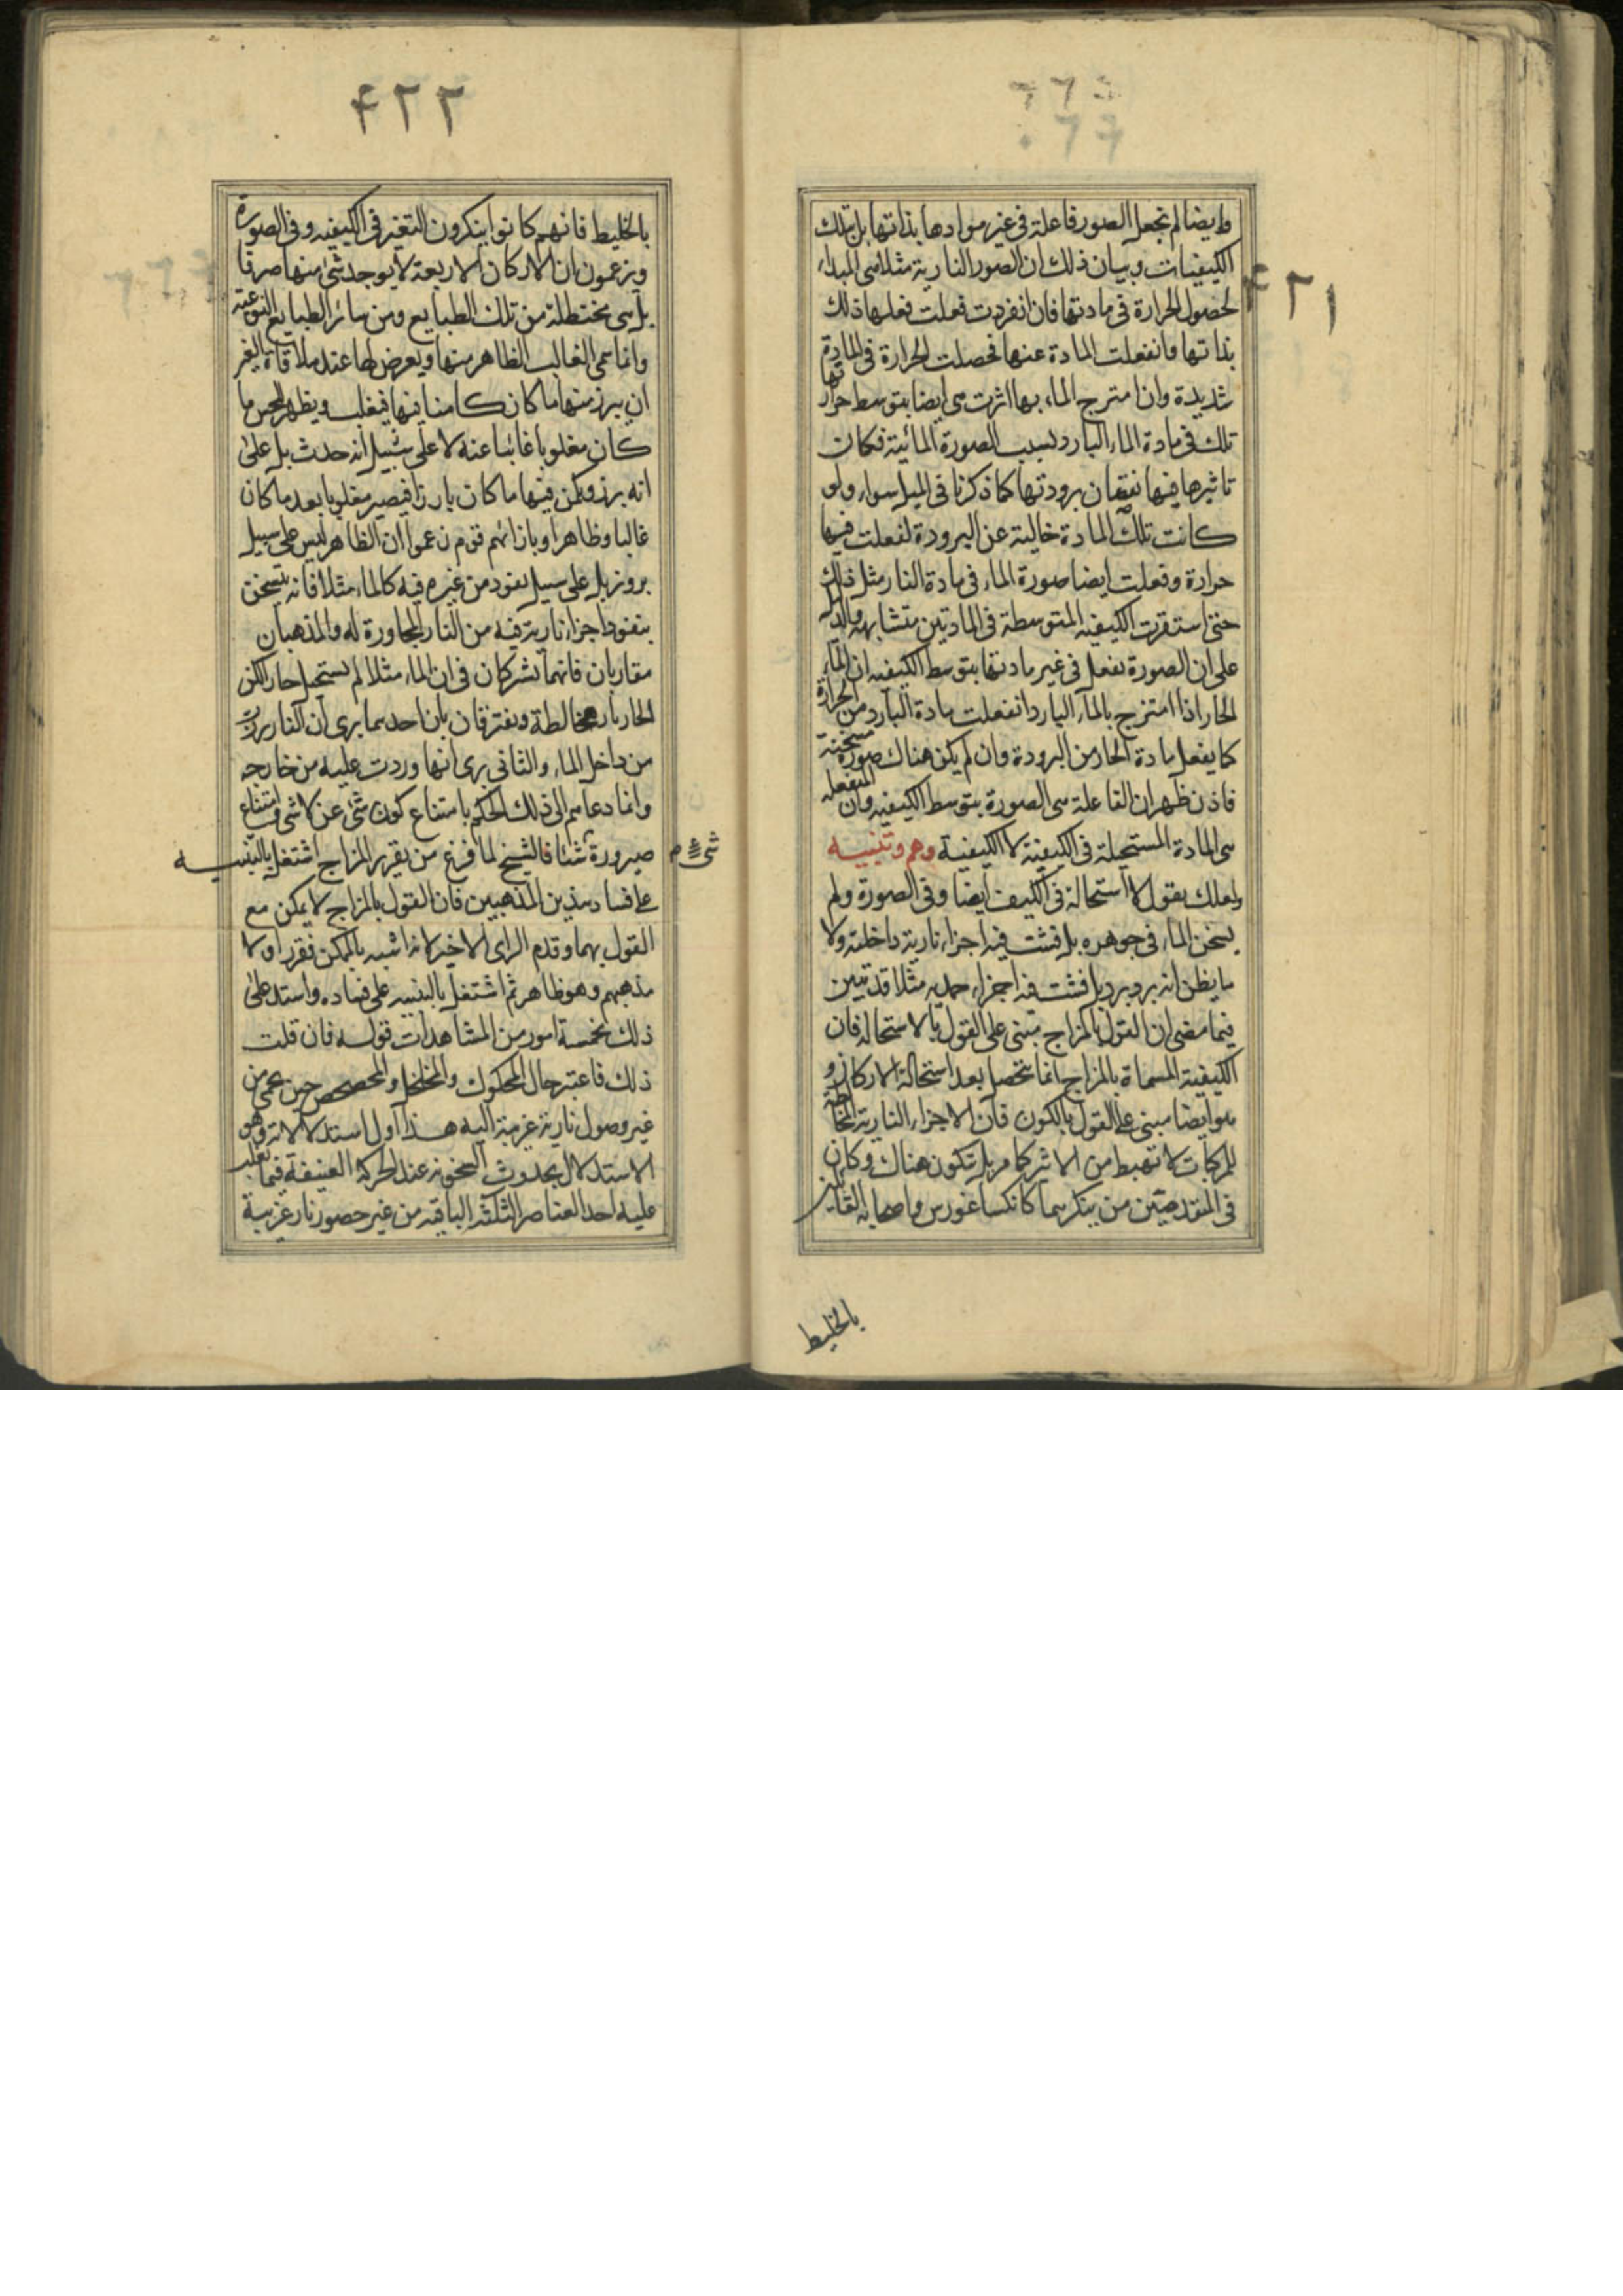 ٤٢١
وايضا لم نجعل الصور فاعلة فى غير موادها بذاتها بل بتلك
الكيفيات وبيان ذلك ان الصور النارية مثلا هى المبداء
لحصول الحرارة فى مادتها فان انفردت فعلت فعلها ذلك
بذاتها وانفعلت المادة عنها فحصلت الحرارة فى المادة
شديدة وان امتزج الماء بها اثرت هى ايضا بتوسط حرارتها
تلك فى مادة الماء البارد بسبب الصورة المائية فكان
تاثيرها فيها نقصان برودتها كما ذكرنا فى الميل سواء ولو
كانت تلك المادة خالية عن البرودة لفعلت فيها
حرارة وفعلت ايضا صورة الماء فى مادة النار مثل ذلك
حتى استقرت الكيفيه المتوسطة فى المادتين متشابهه والدليل
على ان الصورة تفعل فى غير مادتها بتوسط الكيفيه ان الماء
الحار اذا امتزج بالماء البارد انفعلت مادة البارد من الحرارة
كما يفعل مادة الحار من البرودة وان لم يكن هناك صورة مسخنة
فاذن ظهر ان الفاعلة هى الصورة بتوسط الكيفيه وان المنفعله
هى المادة المستحيلة فى الكيفية لا الكيفية وهم وتنبيه
ولعلك يقول لا استحالة فى الكيف ايضا وفى الصورة ولم
يسخن الماء فى جوهره بل فشت فيه اجزاء نارية داخلته ولا
ما يظن انه برد برد بل فشت فيه اجزاء جمديه مثلا قد تبين
فيما مضى ان القول بالمزاج مبنى على القول بالاستحالة فان
الكيفية المسماة بالمزاج انما تحصل بعد استحالة الاركان و
هو ايضا مبنى على القول بالكون فان الاجزاء النارية المخالطة
للمركبات لا تهبط من الاثير كما مر بل تتكون هناك وكان
فى المتقدمين من ينكرهما كانكساغورس واصحابه القايلين
بالخليط
٤٢٢
بالخليط فانهم كانوا ينكرون التغير فى الكيفيه وفى الصورة
ويزعمون ان الاركان الاربعة لا يوجد شئ منها صرفا
بل هى مختطلة من تلك الطبايع ومن سائر الطبايع النوعية
وانما سمى الغالب الظاهر منها ويعرض لها عند ملاقاة الغير
ان يبرز منها ما كان كامنا فيها فيغلب ويظهر للحس ما
كان مغلوبا غائبا عنه لا على سبيل انه حدث بل على
انه برز ويكمن فيها ما كان بارزا فيصير مغلوبا بعد ما كان
غالبا وظاهرا وبازائهم قوم زعموا ان الظاهر ليس على سبيل
بروز بل على سبيل نفوذ من غيره فيه كالماء مثلا فانه يتسخن
بنفوذ اجزاء نارية فيه من النار المجاورة له والمذهبان
متقاربان فانهما يشتركان فى ان الماء مثلا لم يستحل حارا لكن
الحار نار مخالطة ويفترقان بان احدهما يرى ان النار برزت
من داخل الماء والثانى يرى انها وردت عليه من خارجه
وانما دعاهم الى ذلك الحكم بامتناع كون شئ عن لا شئ وامتناع
صيرورة شئ شئا فالشيخ لما فرغ من تقرير المزاج اشتغل بالتنبيه
على فساد هذين المذهبين فان القول بالمزاج لا يمكن مع
القول بهما وقدم الراى الاخير لانه اشبه بالممكن فقرر اولا
مذهبهم وهو ظاهر ثم اشتغل بالتنبيه على فساده واستدل على
ذلك بخمسة امور من المشاهدات قوله فان قلت
ذلك فاعتبر حال المحكوك والمخلخل والمخضخض حين يحمى من
غير وصول نارية غريبة اليه هذا اول استدلالاته وهو
الاستدلال بحدوث السخونة عند الحركة العنيفة فيما يغلب
عليه احد العناصر الثلثة الباقيه من غير حضور نار غريبة